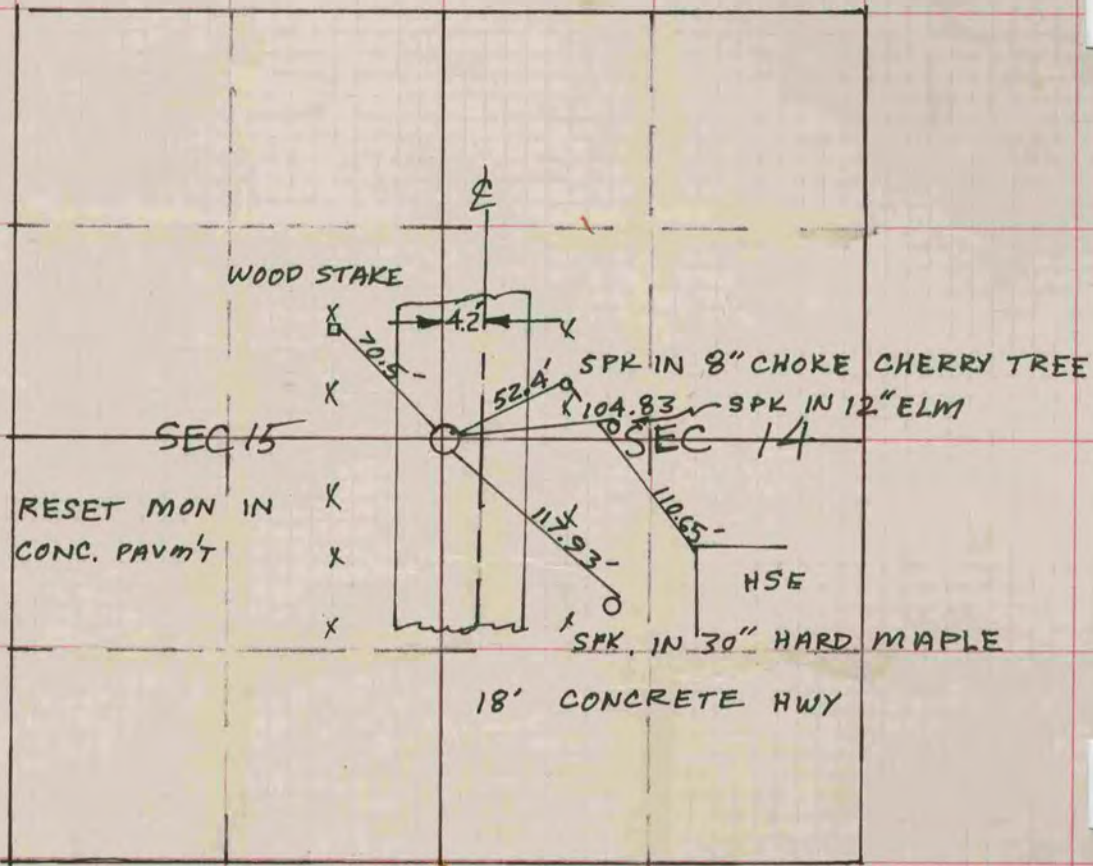 ℄
WOOD STAKE
4.2'
70.5-
52.4'
SPK IN 8" CHOKE CHERRY TREE
104.83
SPK IN 12" ELM
SEC 15
SEC 14
RESET MON IN
CONC. PAVM'T
110.65-
117.93-
HSE
SPK. IN 30" HARD MAPLE
18' CONCRETE HWY